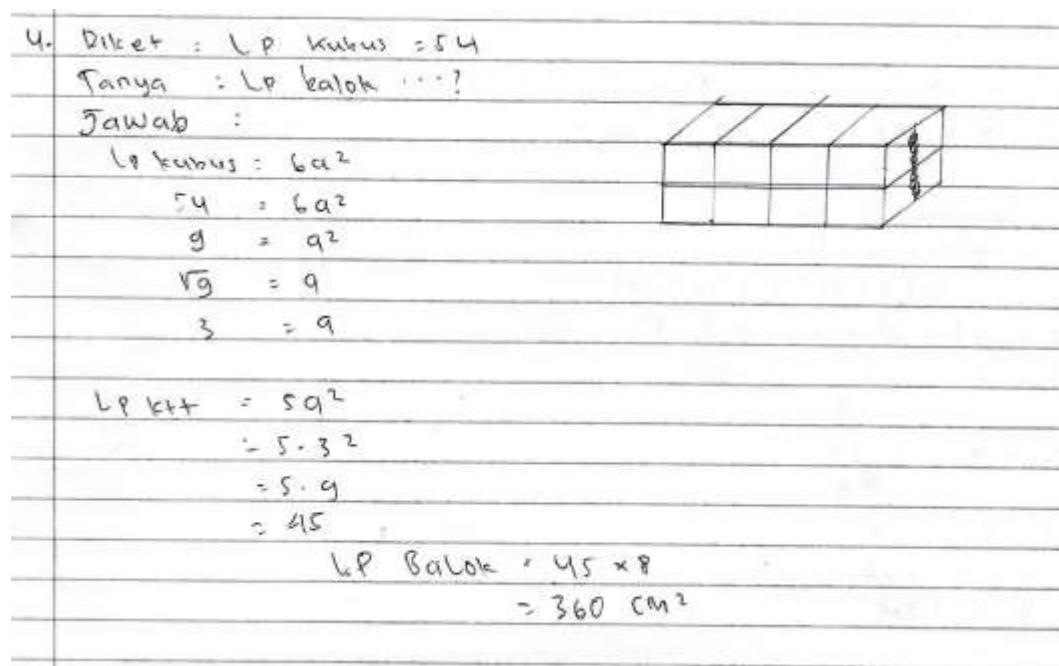 4. Diket : LP kubus = 54
Tanya : LP balok ...?
Jawab :
LP kubus = 6a²
54 = 6a²
9 = a²
√9 = a
3 = a
LP ktt = 5a²
= 5.3²
= 5.9
= 45
LP Balok = 45 x 8
= 360 cm²